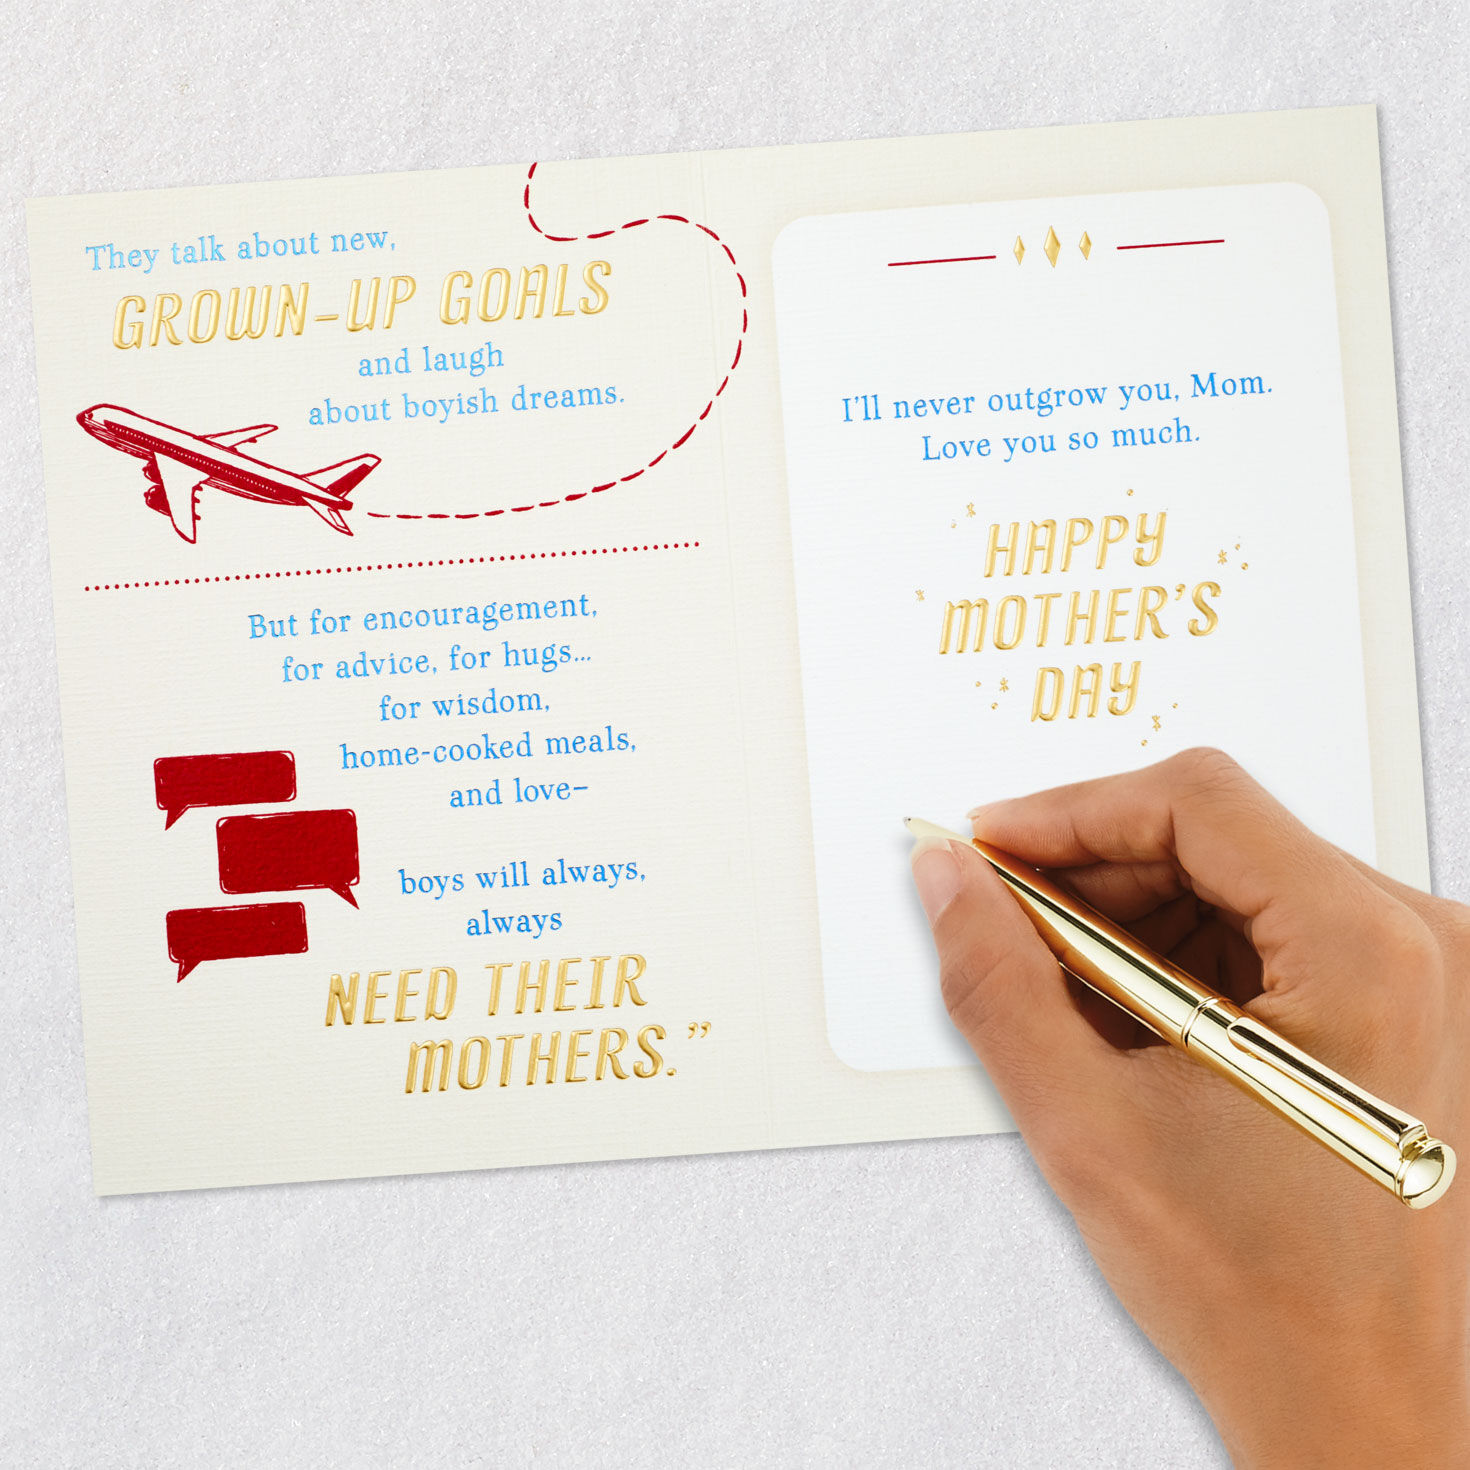 They talk about new,
GROWN-UP GOALS
and laugh
about boyish dreams.
But for encouragement,
for advice, for hugs...
for wisdom,
home-cooked meals,
and love–
boys will always,
always
NEED THEIR
MOTHERS.”
I’ll never outgrow you, Mom.
Love you so much.
HAPPY
MOTHER’S
DAY